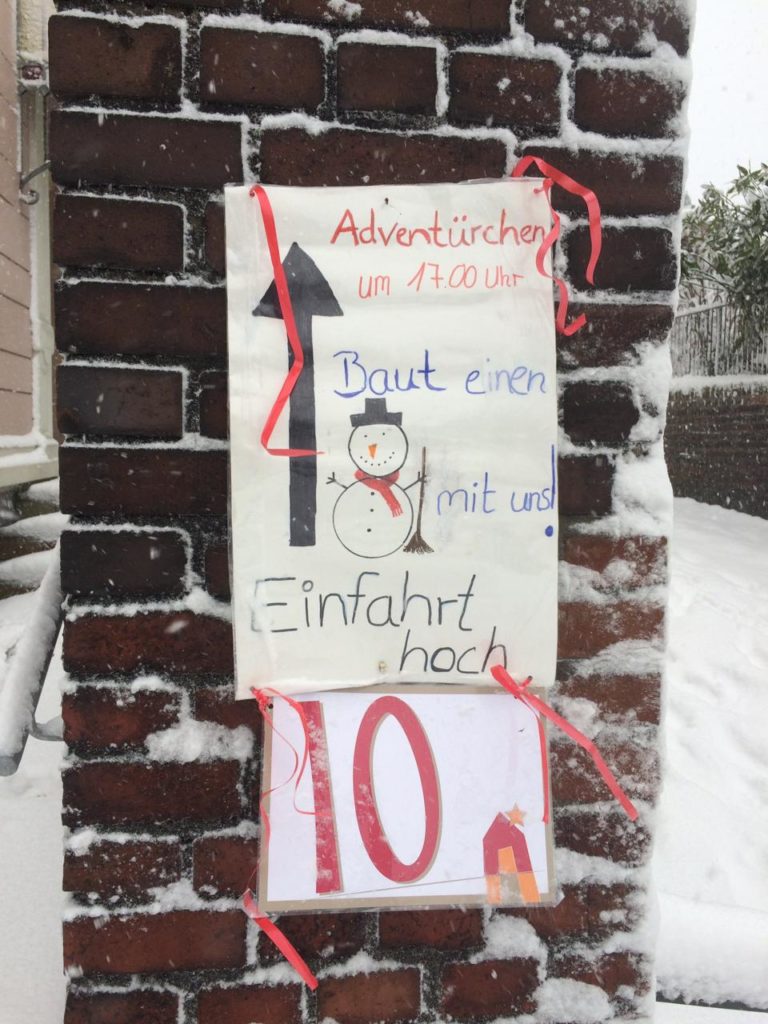 Adventürchen
um 17.00 Uhr
Baut einen
mit uns!
Einfahrt
hoch
10